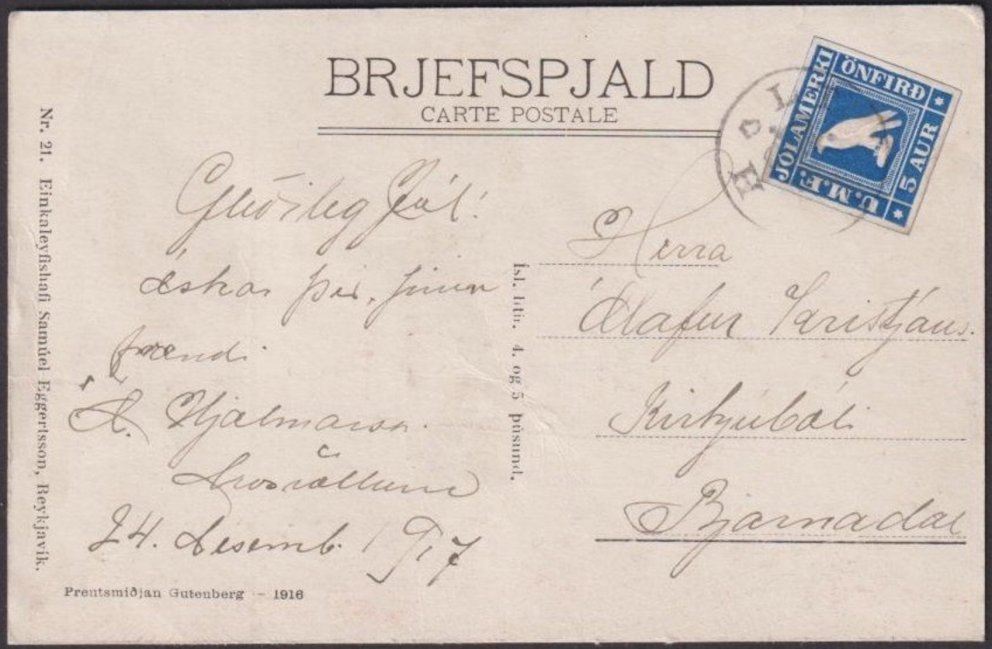 BRJEFSPJALD
CARTE POSTALE
JÓLAMERKI
ÖNFIRÐ
5 AUR
U.M.F.
Nr. 21. Einkaleyfishafi Samúel Eggertsson, Reykjavík.
Gleðileg Jól!
óskar þér, þinn
frændi
Á. Hjálmarsson
24. desemb. 1917
Prentsmiðjan Gutenberg — 1916
Ísl. litir. 4. og 5 þúsund.
Herra
Ólafur Kristjáns.
Kirkjubóli
Bjarnadal